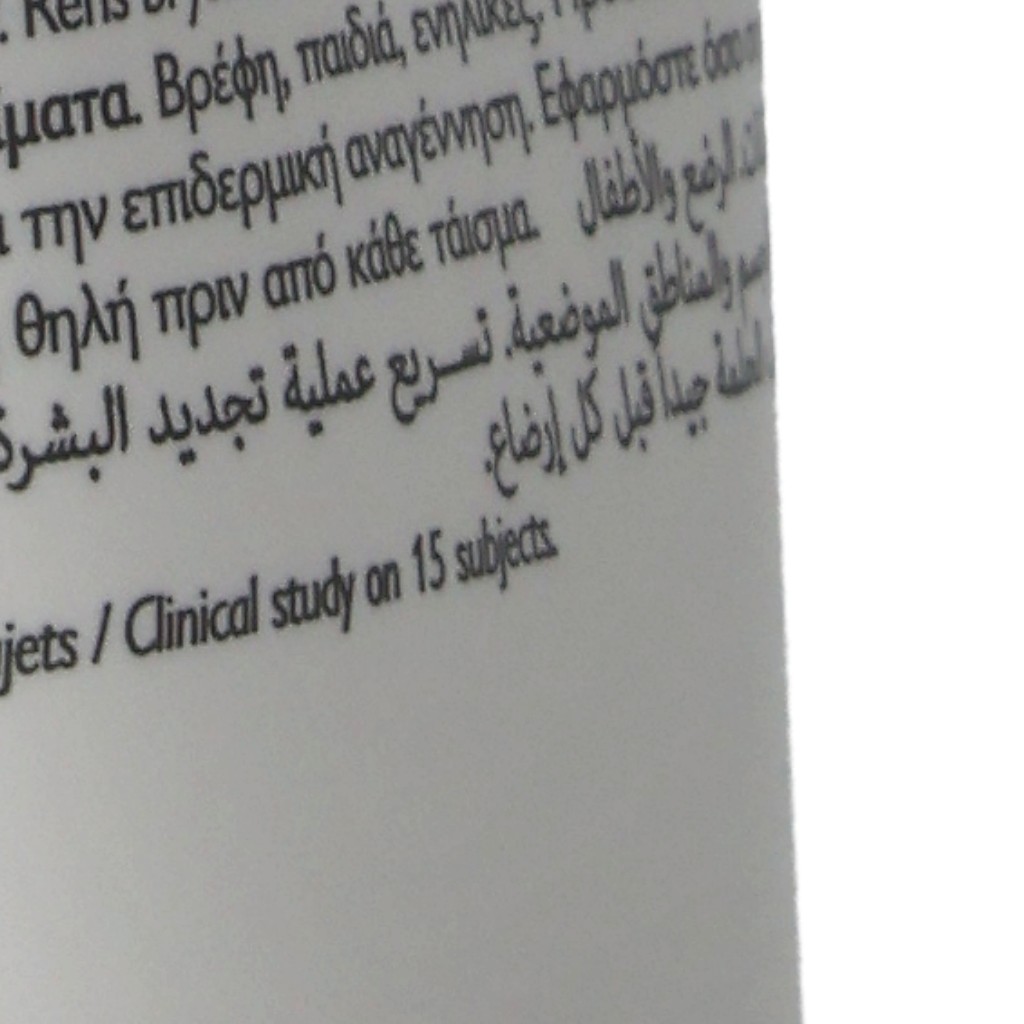 Rens
ματα. Βρέφη, παιδιά, ενηλικες.
την επιδερμική αναγέννηση. Εφαρμόστε όσο
θηλή πριν από κάθε τάισμα. لرضع والأطفال
والمناطق الموضعية. تسريع عملية تجديد البشرة
جيدا قبل كل إرضاع.
jets / Clinical study on 15 subjects.